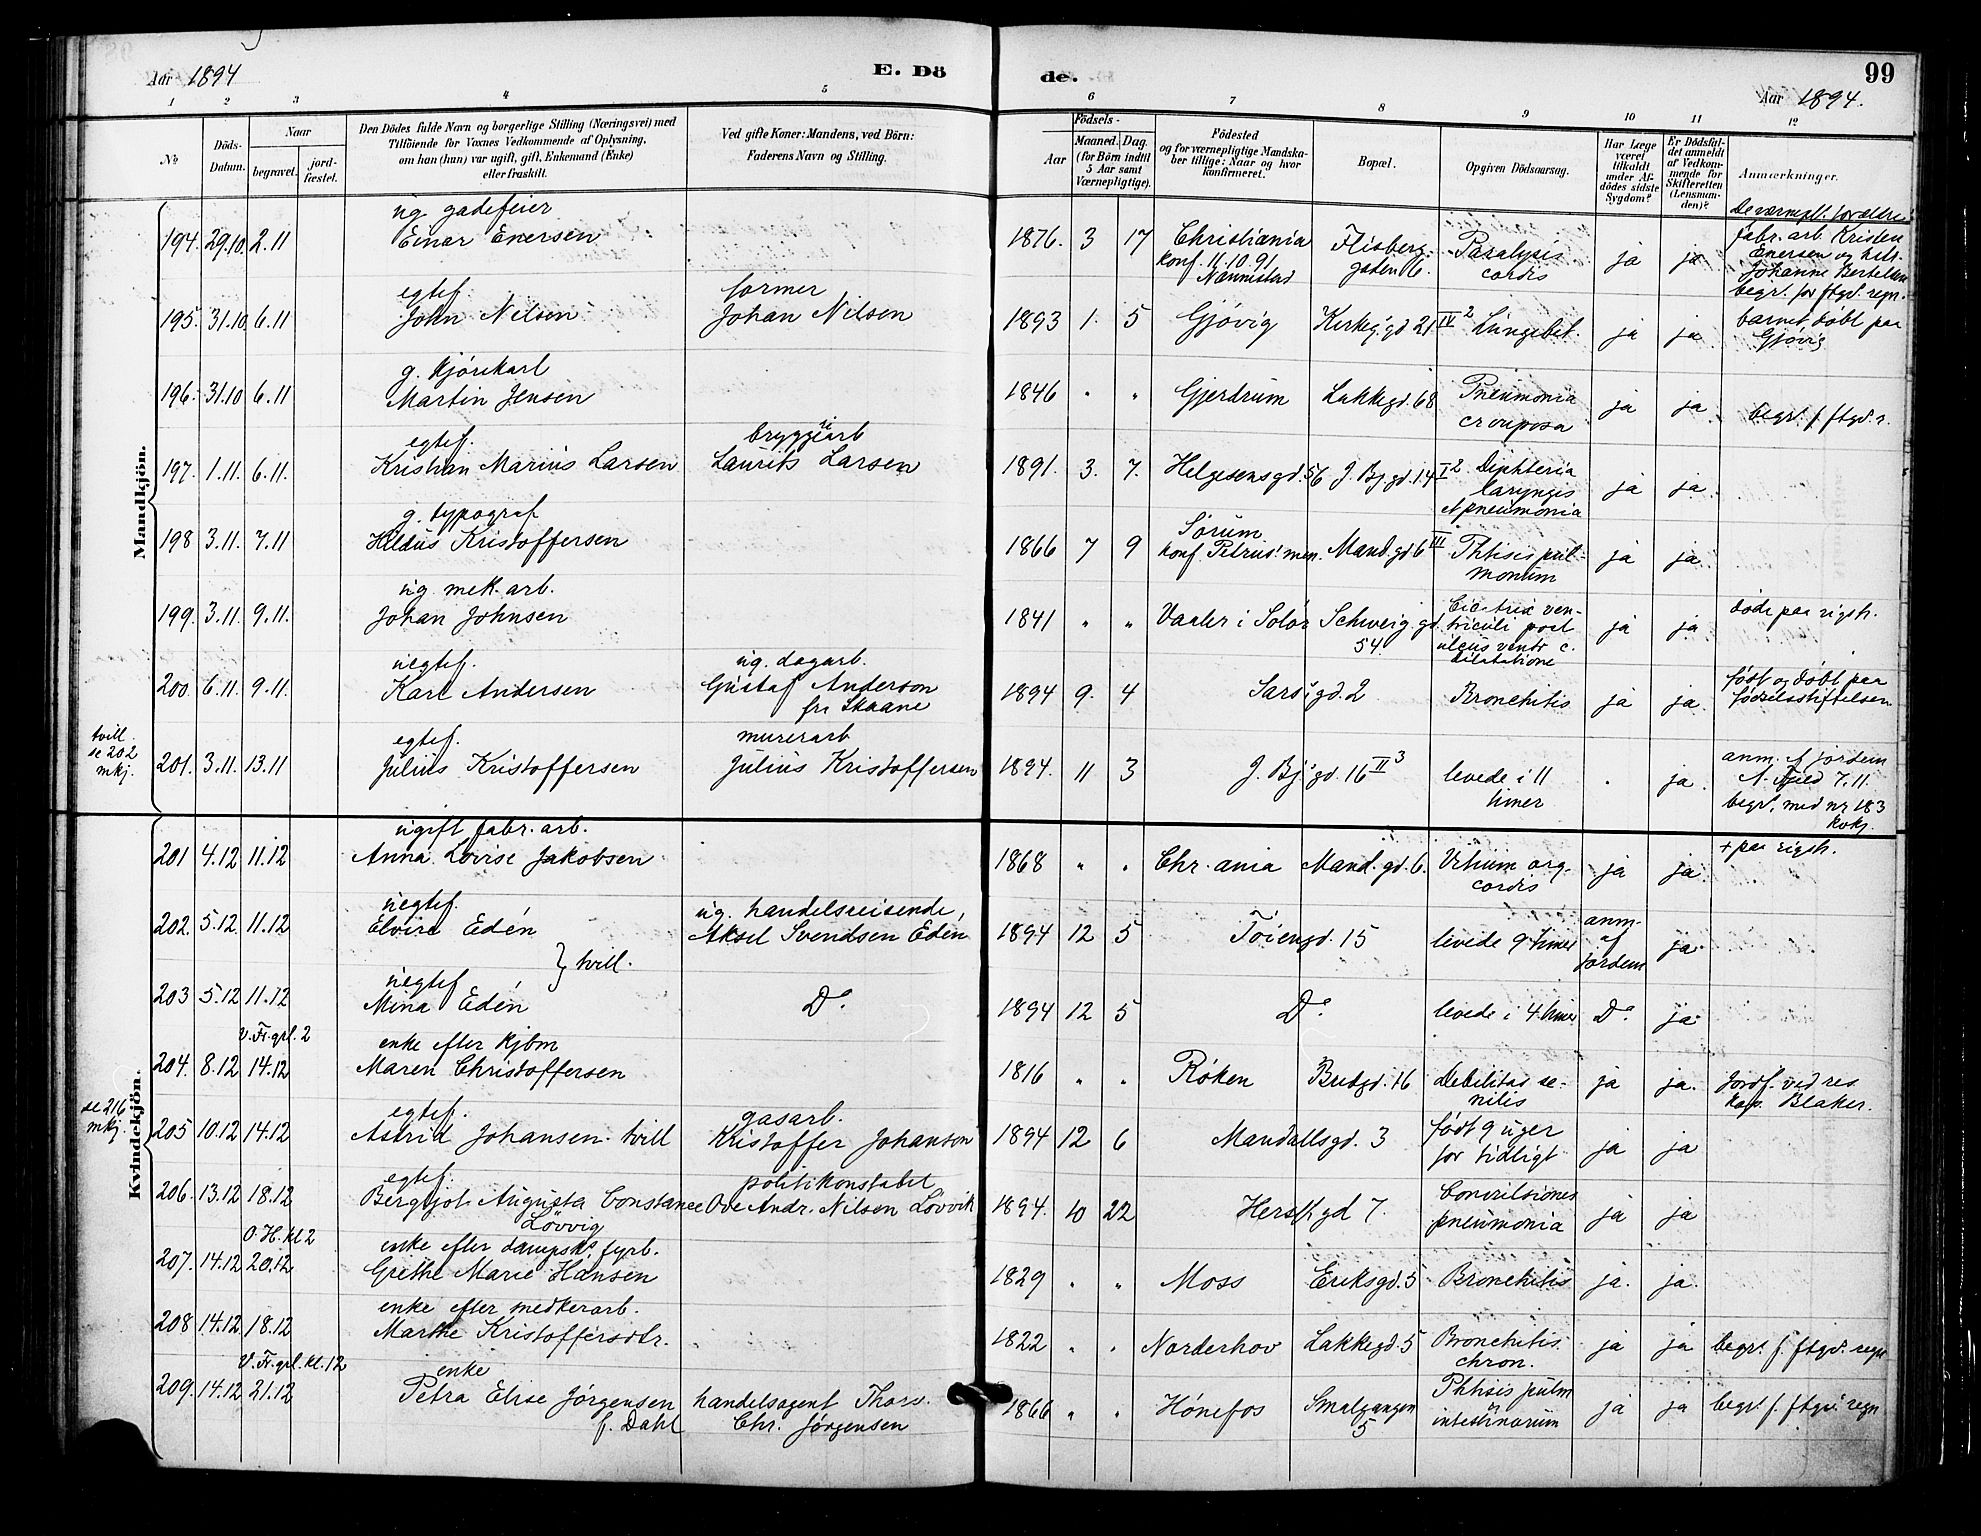 Aar 1894
E. Dö
de.
99
Aar 1894.
1 2 3 4 5 6 7 8 9 10 11 12
No
Döds-Datum.
Naar
begravet.
jord-fæstet.
Den Dödes fulde Navn og borgerlige Stilling (Næringsvei) med
Tilföiende for Voxnes Vedkommende af Oplysning,
om han (hun) var ugift, gift, Enkemand (Enke)
eller fraskilt.
Ved gifte Koner: Mandens, ved Börn:
Faderens Navn og Stilling.
Födsels-
Aar
Maaned. Dag.
(for Börn indtil
5 Aar samt
Værnepligtige).
Födested
og for værnepligtige Mandska-
ber tillige: Naar og hvor
konfirmeret.
Bopæl.
Opgiven Dödsaarsag.
Har Læge
været
tilkaldt
under Af-
dödes sidste
Sygdom?
Er Dödsfal-
det anmeldt
af Vedkom-
mende for
Skifteretten
(Lensman-
den)?
Anmærkninger.
Mandkjön.
ug. gadefeier
194. 29.10. 2.11 Einar Enersen 1876. 3 17 Christiania Flisberg-
konf. 11.10.91 gaden 6. Paralysis cordis ja ja
fabr. arb. Kristen
Enersen og hstr.
Johanne Bertelsen
begr. for ftgd. regn.
egtef. former
195. 31.10 6.11 John Nilsen Johan Nilsen 1893 1. 5 Gjøvig Kirkeg.gd 21 IV 2 Lungebet. ja ja barnet døbt paa
Gjøvig
g. kjørekarl
196. 31.10 6.11 Martin Jensen 1846 " " Gjerdrum Lakkegd. 68 Pneumonia
crouposa ja ja begr. f. ftgd. r.
egtef. bryggeriarb
197. 1.11. 6.11. Kristian Marius Larsen Laurits Larsen 1891. 3. 7. Helgesensgd. 56 J. Bj.gd. 14 I 2 Diphteria
laryngis
et pneumonia ja ja.
g. typograf
198 3.11. 7.11 Hildus Kristoffersen 1866 7 9 Sørum
konf. Petrus' men. Mand.gd 6 III Phtisis pul-
monum ja ja.
ug. mek. arb.
199. 3.11. 9.11. Johan Johnsen 1841 " " Vaaler i Solør Schweig.gd.
54. Cicatrix ven-
triculi post
ulcus ventr c.
dilatatione ja ja døde paa rigsh.
uegtef. ug. dagarb.
200. 6.11. 9.11. Karl Andersen Gustaf Anderson
fra Skaane 1894 9. 4 Sars'gd. 2 Bronchitis ja ja. født og døbt paa
fødselsstiftelsen
tvill.
se 202
mkj.
egtef. murerarb
201. 3.11. 13.11 Julius Kristoffersen Julius Kristoffersen 1894. 11 3 J. Bj.gd. 16 II 3 levede i 11
timer . ja. anm. af jordem
7.11.
begr. med nr 183
kvkj.
Kvindekjön.
ugift fabr. arb.
201 4.12 11.12 Anna Lovise Jakobsen 1868 " " Chr.ania Mand.gd. 6. Vitium org.
cordis ja ja. + paa rigsh.
uegtef. ug. handelsreisende,
202. 5.12 11.12 Elvire Edén Aksel Svendsen Edén 1894 12 5 Tøiengd. 15 levede 9 timer anm.
af
jordem ja.
} tvill.
uegtef.
203 5.12 11.12 Mina Edén Do. 1894 12 5 Do. levede i 4 timer Do ja.
v. Fr. grl. 2 enke efter kjbm
204. 8.12 14.12 Maren Christoffersen 1816 " " Røken Budgd. 16 Debilitas se-
nilis ja ja. Jordf. ved res.
kap. Blaker.
se 216
mkj.
egtef. gasarb.
205 10.12 14.12 Astrid Johansen tvill Kristoffer Johanson 1894 12 6 Mandallsgd. 3 født 9 uger
for tidligt ja ja
egtef. politikonstabel
206. 13.12 18.12 Bergljot Augusta Constance Ove Andr. Nilsen Løvvik
Løvvig 1894. 10 22 Herslf.gd 7. Convulsiones
pneumonia ja ja
O. H. kl 2 enke efter dampsk. fyrb.
207. 14.12 20.12 Grethe Marie Hansen 1829 " " Moss Eriksgd. 5 Bronchitis ja. ja.
enke efter
208 14.12 18.12 Marthe Kristoffersdtr. 1822 " " Norderhov Lakkegd. 5 Bronchitis
chron. ja ja begr. f. ftgd. regn
V. Fr. grl. kl. 12 enke
209. 14.12 21.12 Petra Elise Jørgensen handelsagent Thorv.
f. Dahl Chr. Jørgensen 1866 " " Hønefos Smalgangen
5 Phtisis pulm
intestinarum ja ja begr. f. ftgd. regn